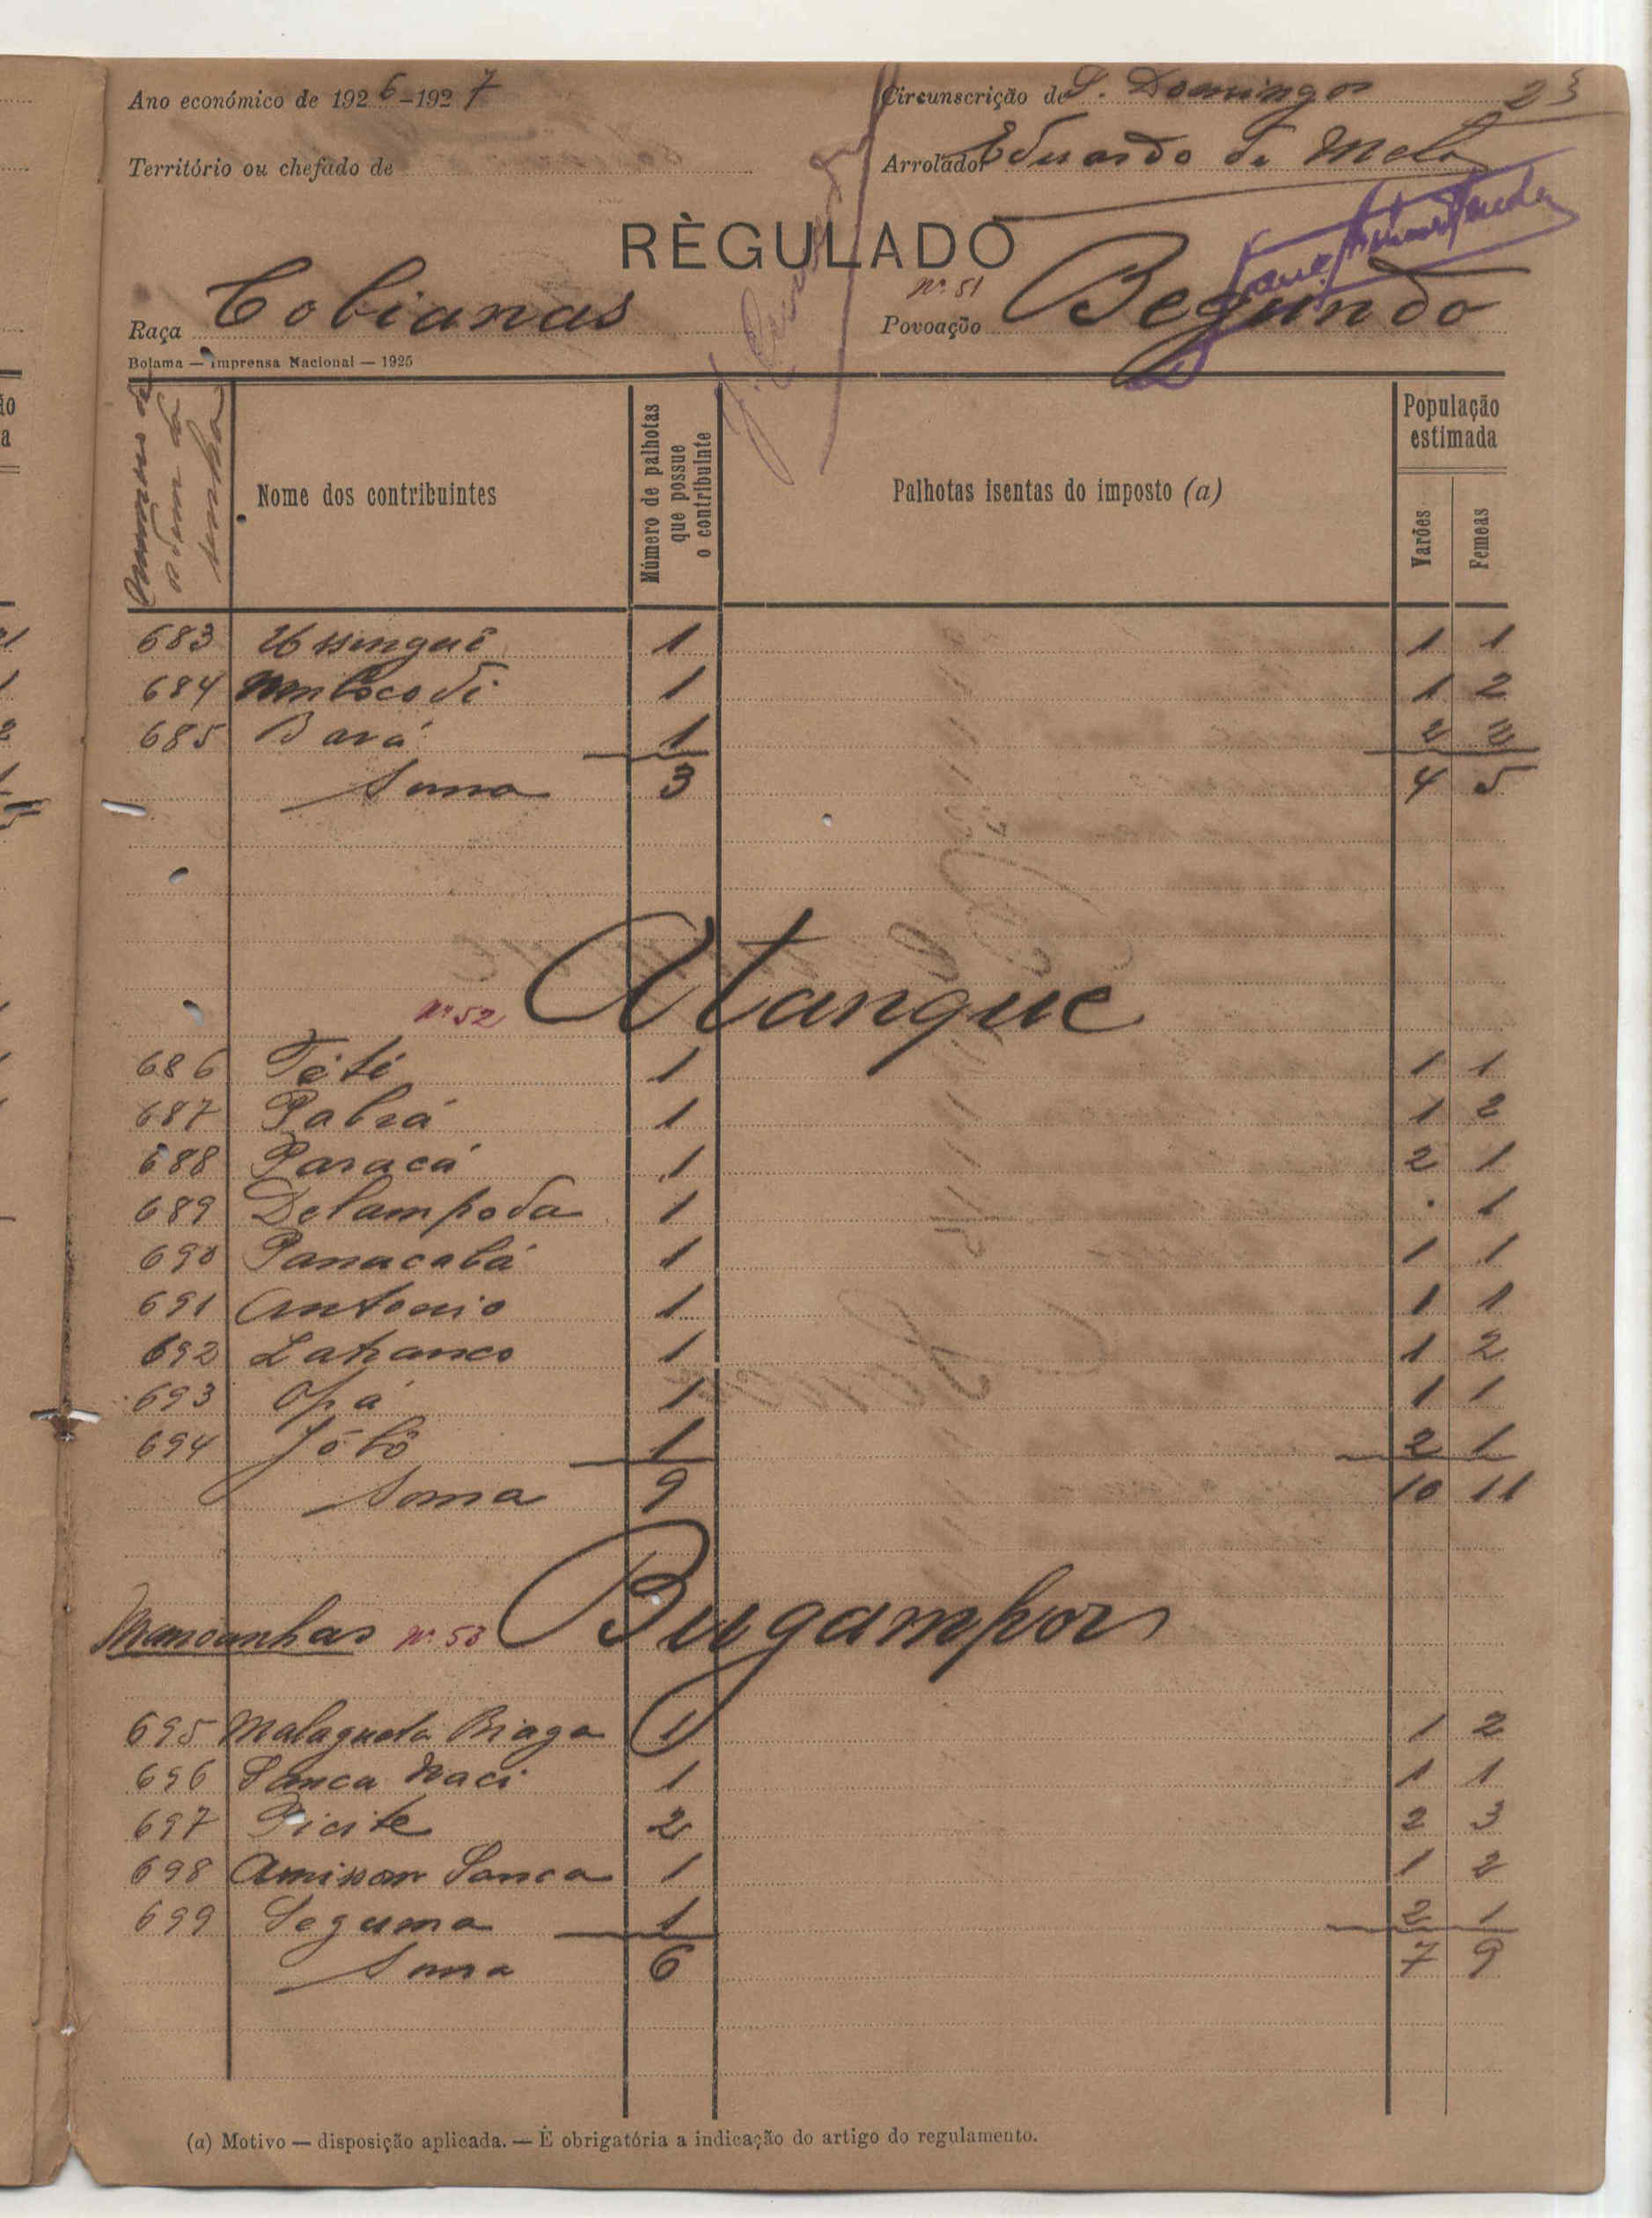 Ano económico de 1926-1927
Circunscrição de S. Domingos
23
Território ou chefado de
Arrolador Eduardo de Melo
RÈGULADO
Raça Cobianas
Nº 51
Povoação Begundo
Bolama — Imprensa Nacional — 1925
Numero de
Nome dos contribuintes
Número de palhotas que possue o contribuinte
Palhotas isentas do imposto (a)
População estimada
Varões
Femeas
683 Ussinguê 1 1 1
684 1 1 2
685 Bará 1 2 2
Soma 3 4 5
Nº 52 Atangue
686 Têtê 1 1 1
687 Pabrá 1 1 2
688 Paracá 1 2 1
689 Delampoda 1 . 1
690 Panacabá 1 1 1
691 Antonio 1 1 1
692 Latranco 1 1 2
693 Opá 1 1 1
694 Jóbô 1 2 1
Soma 9 10 11
Mancanhas Nº 53 Bugampor
695 Malagueta Biaga 1 1 2
696 Sanca Naci 1 1 1
697 Picite 2 2 3
698 Sanca 1 1 2
699 Seguma 1 2 1
Soma 6 7 9
(a) Motivo — disposição aplicada. — É obrigatória a indicação do artigo do regulamento.